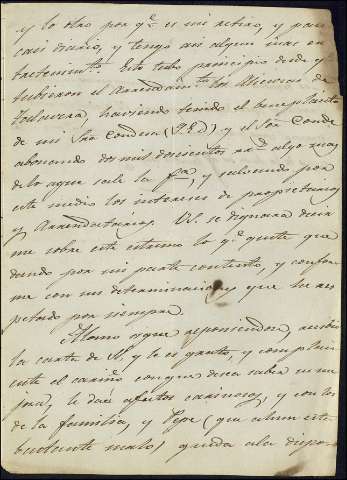 y lo otro por q.e es mi retiro, y paso
casi diario, y tengo asi algun mas en
tretenim.to Esto tubo principio desde q.e
tubieron el Arrendam.to los
haviendo tenido el beneplacito
de mi S.ra Condesa (Q.E.D) y el S.or Conde
abonando dos mil doscientos r.s algo mas
de lo a que sale la f.a, y salvando por
este medio los intereses de propietarios
y Arrendatarios. VS. se dignara decir
me sobre este estremo lo q.e guste que
dando por mi parte contento, y confor
me con sus determinaciones que he res
petado por siempre.
sigue reponiendose, recibio
la carta de y le es grato, y complacien
te el cariño con que desea saber su me
joria, le da afectos cariñosos, y con los
de la familia, y Pepe (que
bastante malo) queda a la dispos